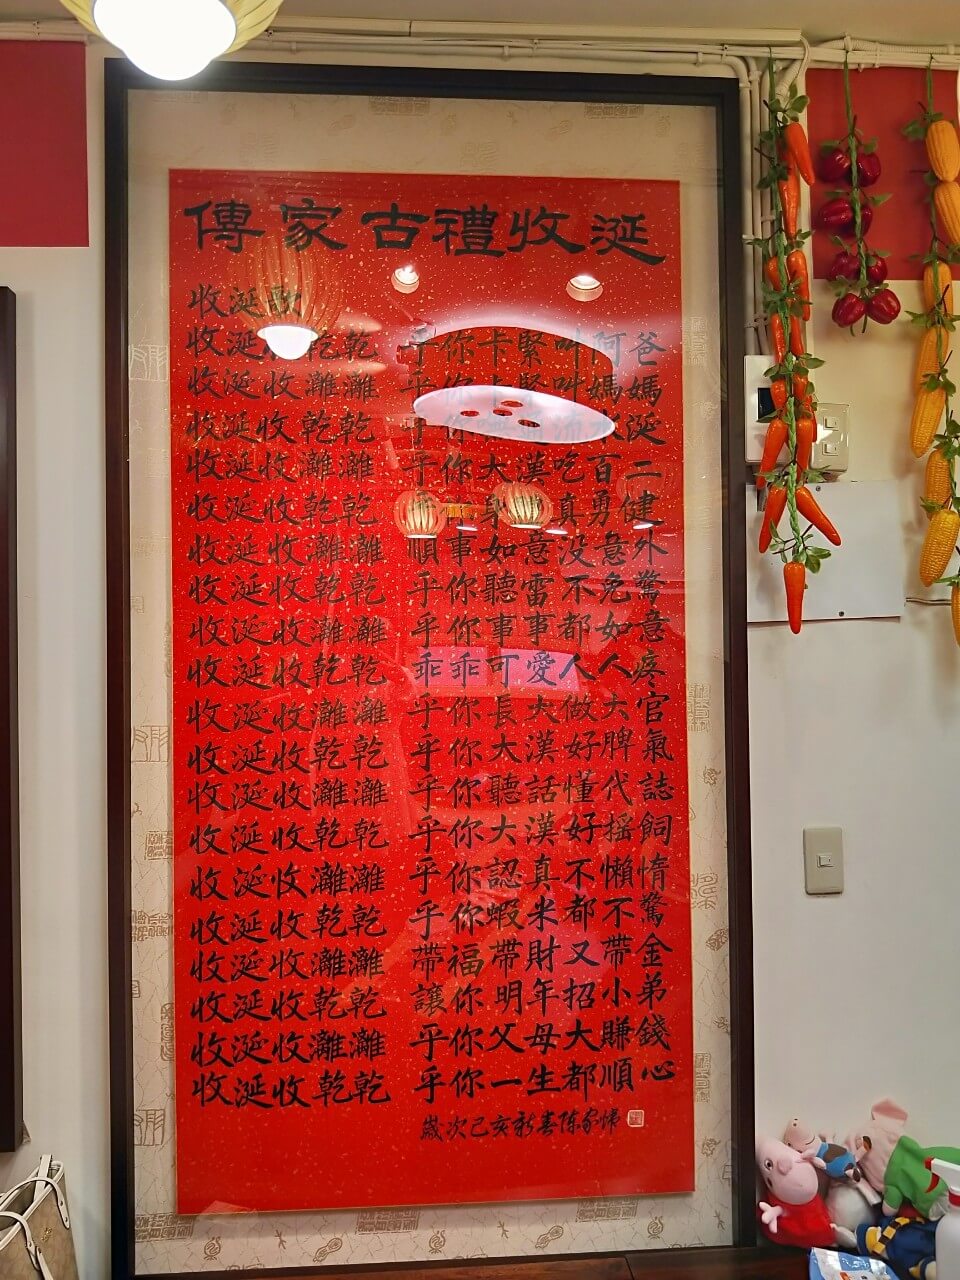 傳家古禮收涎
收涎歌
收涎收乾乾 乎你卡緊叫阿爸
收涎收灕灕 乎你卡緊叫媽媽
收涎收乾乾 乎你 流水涎
收涎收灕灕 乎你大漢吃百二
收涎收乾乾 乎 身 真勇健
收涎收灕灕 順事如意没意外
收涎收乾乾 乎你聽雷不免驚
收涎收灕灕 乎你事事都如意
收涎收乾乾 乖乖可愛人人疼
收涎收灕灕 乎你長大做大官
收涎收乾乾 乎你大漢好脾氣
收涎收灕灕 乎你聽話懂代誌
收涎收乾乾 乎你大漢好摇飼
收涎收灕灕 乎你認真不懶惰
收涎收乾乾 乎你蝦米都不驚
收涎收灕灕 帶福帶財又帶金
收涎收乾乾 讓你明年招小弟
收涎收灕灕 乎你父母大賺錢
收涎收乾乾 乎你一生都順心
歲次己亥新春陳家